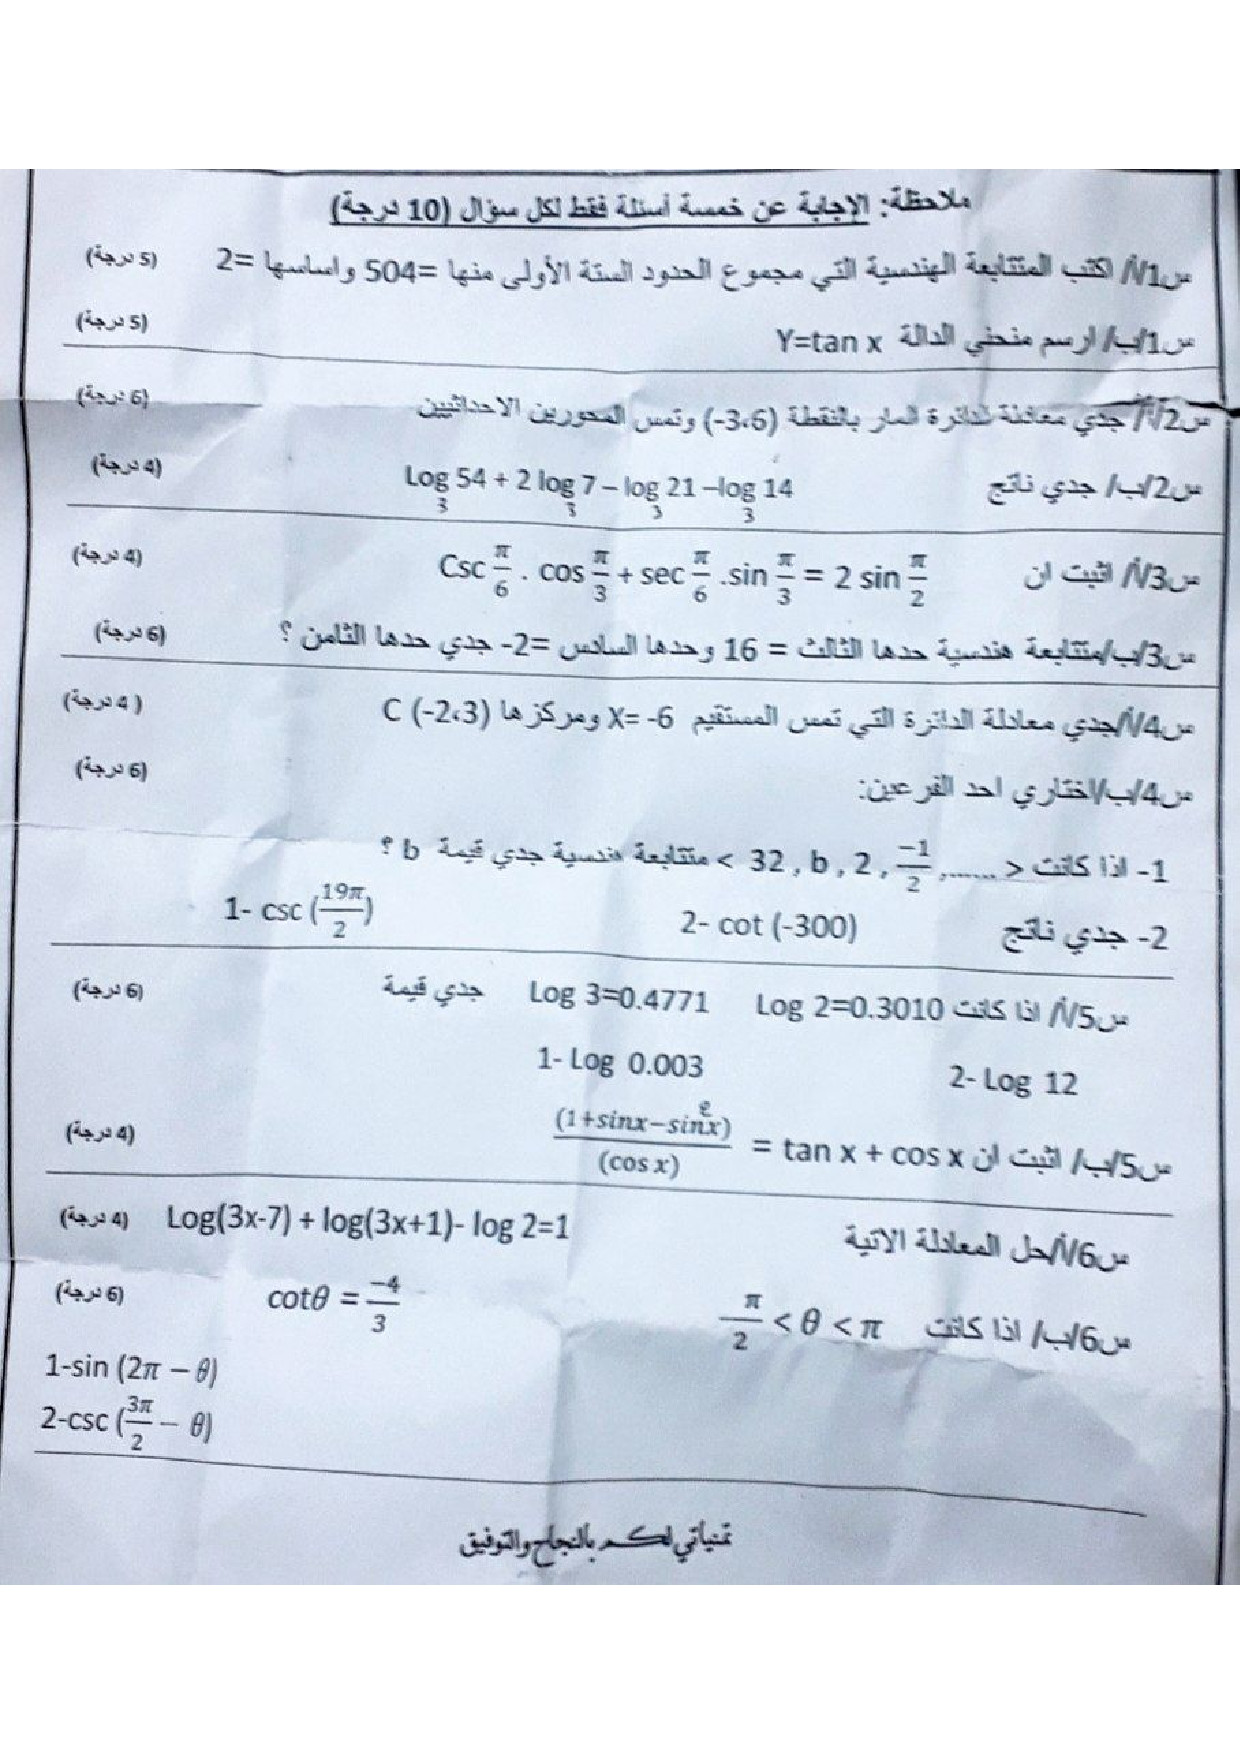 ملاحظة: الإجابة عن خمسة أسئلة فقط لكل سؤال (10 درجة)
س1/أ/ اكتب المتتابعة الهندسية التي مجموع الحدود الستة الأولى منها =504 واساسها =2 (5 درجة)
س1/ب/ ارسم منحني الدالة Y=tan x (5 درجة)
س2/أ/ جدي معادلة الدائرة المار بالنقطة (-3،6) وتمس المحورين الاحداثيين (6 درجة)
س2/ب/ جدي ناتج Log₃ 54 + 2 log₃ 7 – log₃ 21 –log₃ 14 (4 درجة)
س3/أ/ اثبت ان Csc π/6 . cos π/3 + sec π/6 .sin π/3 = 2 sin π/2 (4 درجة)
س3/ب/متتابعة هندسية حدها الثالث = 16 وحدها السادس =2- جدي حدها الثامن ؟ (6 درجة)
س4/أ/جدي معادلة الدائرة التي تمس المستقيم X= -6 ومركزها C (-2،3) (4 درجة)
س4/ب/اختاري احد الفرعين: (6 درجة)
1- اذا كانت < 32 , b , 2 , -1/2 ,....... > متتابعة هندسية جدي قيمة b ؟
2- جدي ناتج 2- cot (-300) 1- csc (19π/2)
س5/أ/ اذا كانت Log 2=0.3010 Log 3=0.4771 جدي قيمة (6 درجة)
1- Log 0.003 2- Log 12
س5/ب/ اثبت ان (1+sinx−sin²x)/(cos x) = tan x + cos x (4 درجة)
س6/أ/حل المعادلة الاتية Log(3x-7) + log(3x+1)- log 2=1 (4 درجة)
س6/ب/ اذا كانت π/2 < θ < π cotθ = -4/3 (6 درجة)
1-sin (2π − θ)
2-csc (3π/2 − θ)
تمنياتي لكم بالنجاح والتوفيق